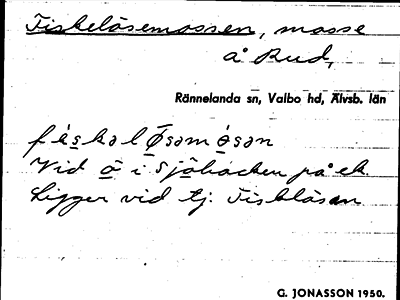 Fiskelösemossen, mosse
å Rud,
Rännelanda sn, Valbo hd, Älvsb. län
fèskəlÖsəmósən
Vid ö i Sjöbacken på ek.
Ligger vid tj. Fisklösen
G. JONASSON 1950.